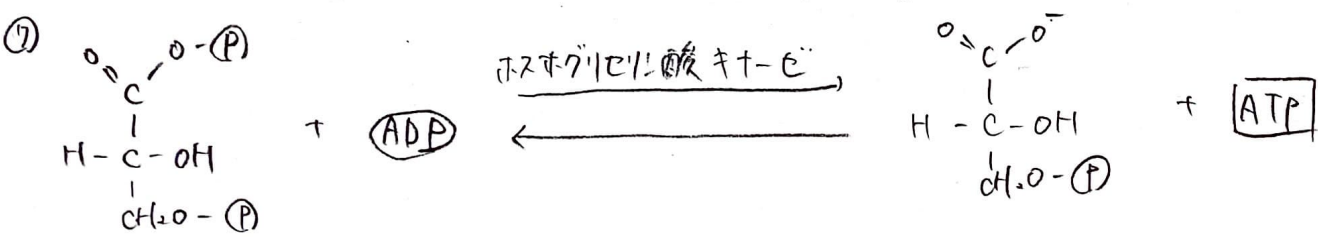 ⑦
O O-Ⓟ
C
H-C-OH
CH₂O-Ⓟ
+
ADP
ホスホグリセリン酸キナーゼ
O O⁻
C
H-C-OH
CH₂O-Ⓟ
+
ATP